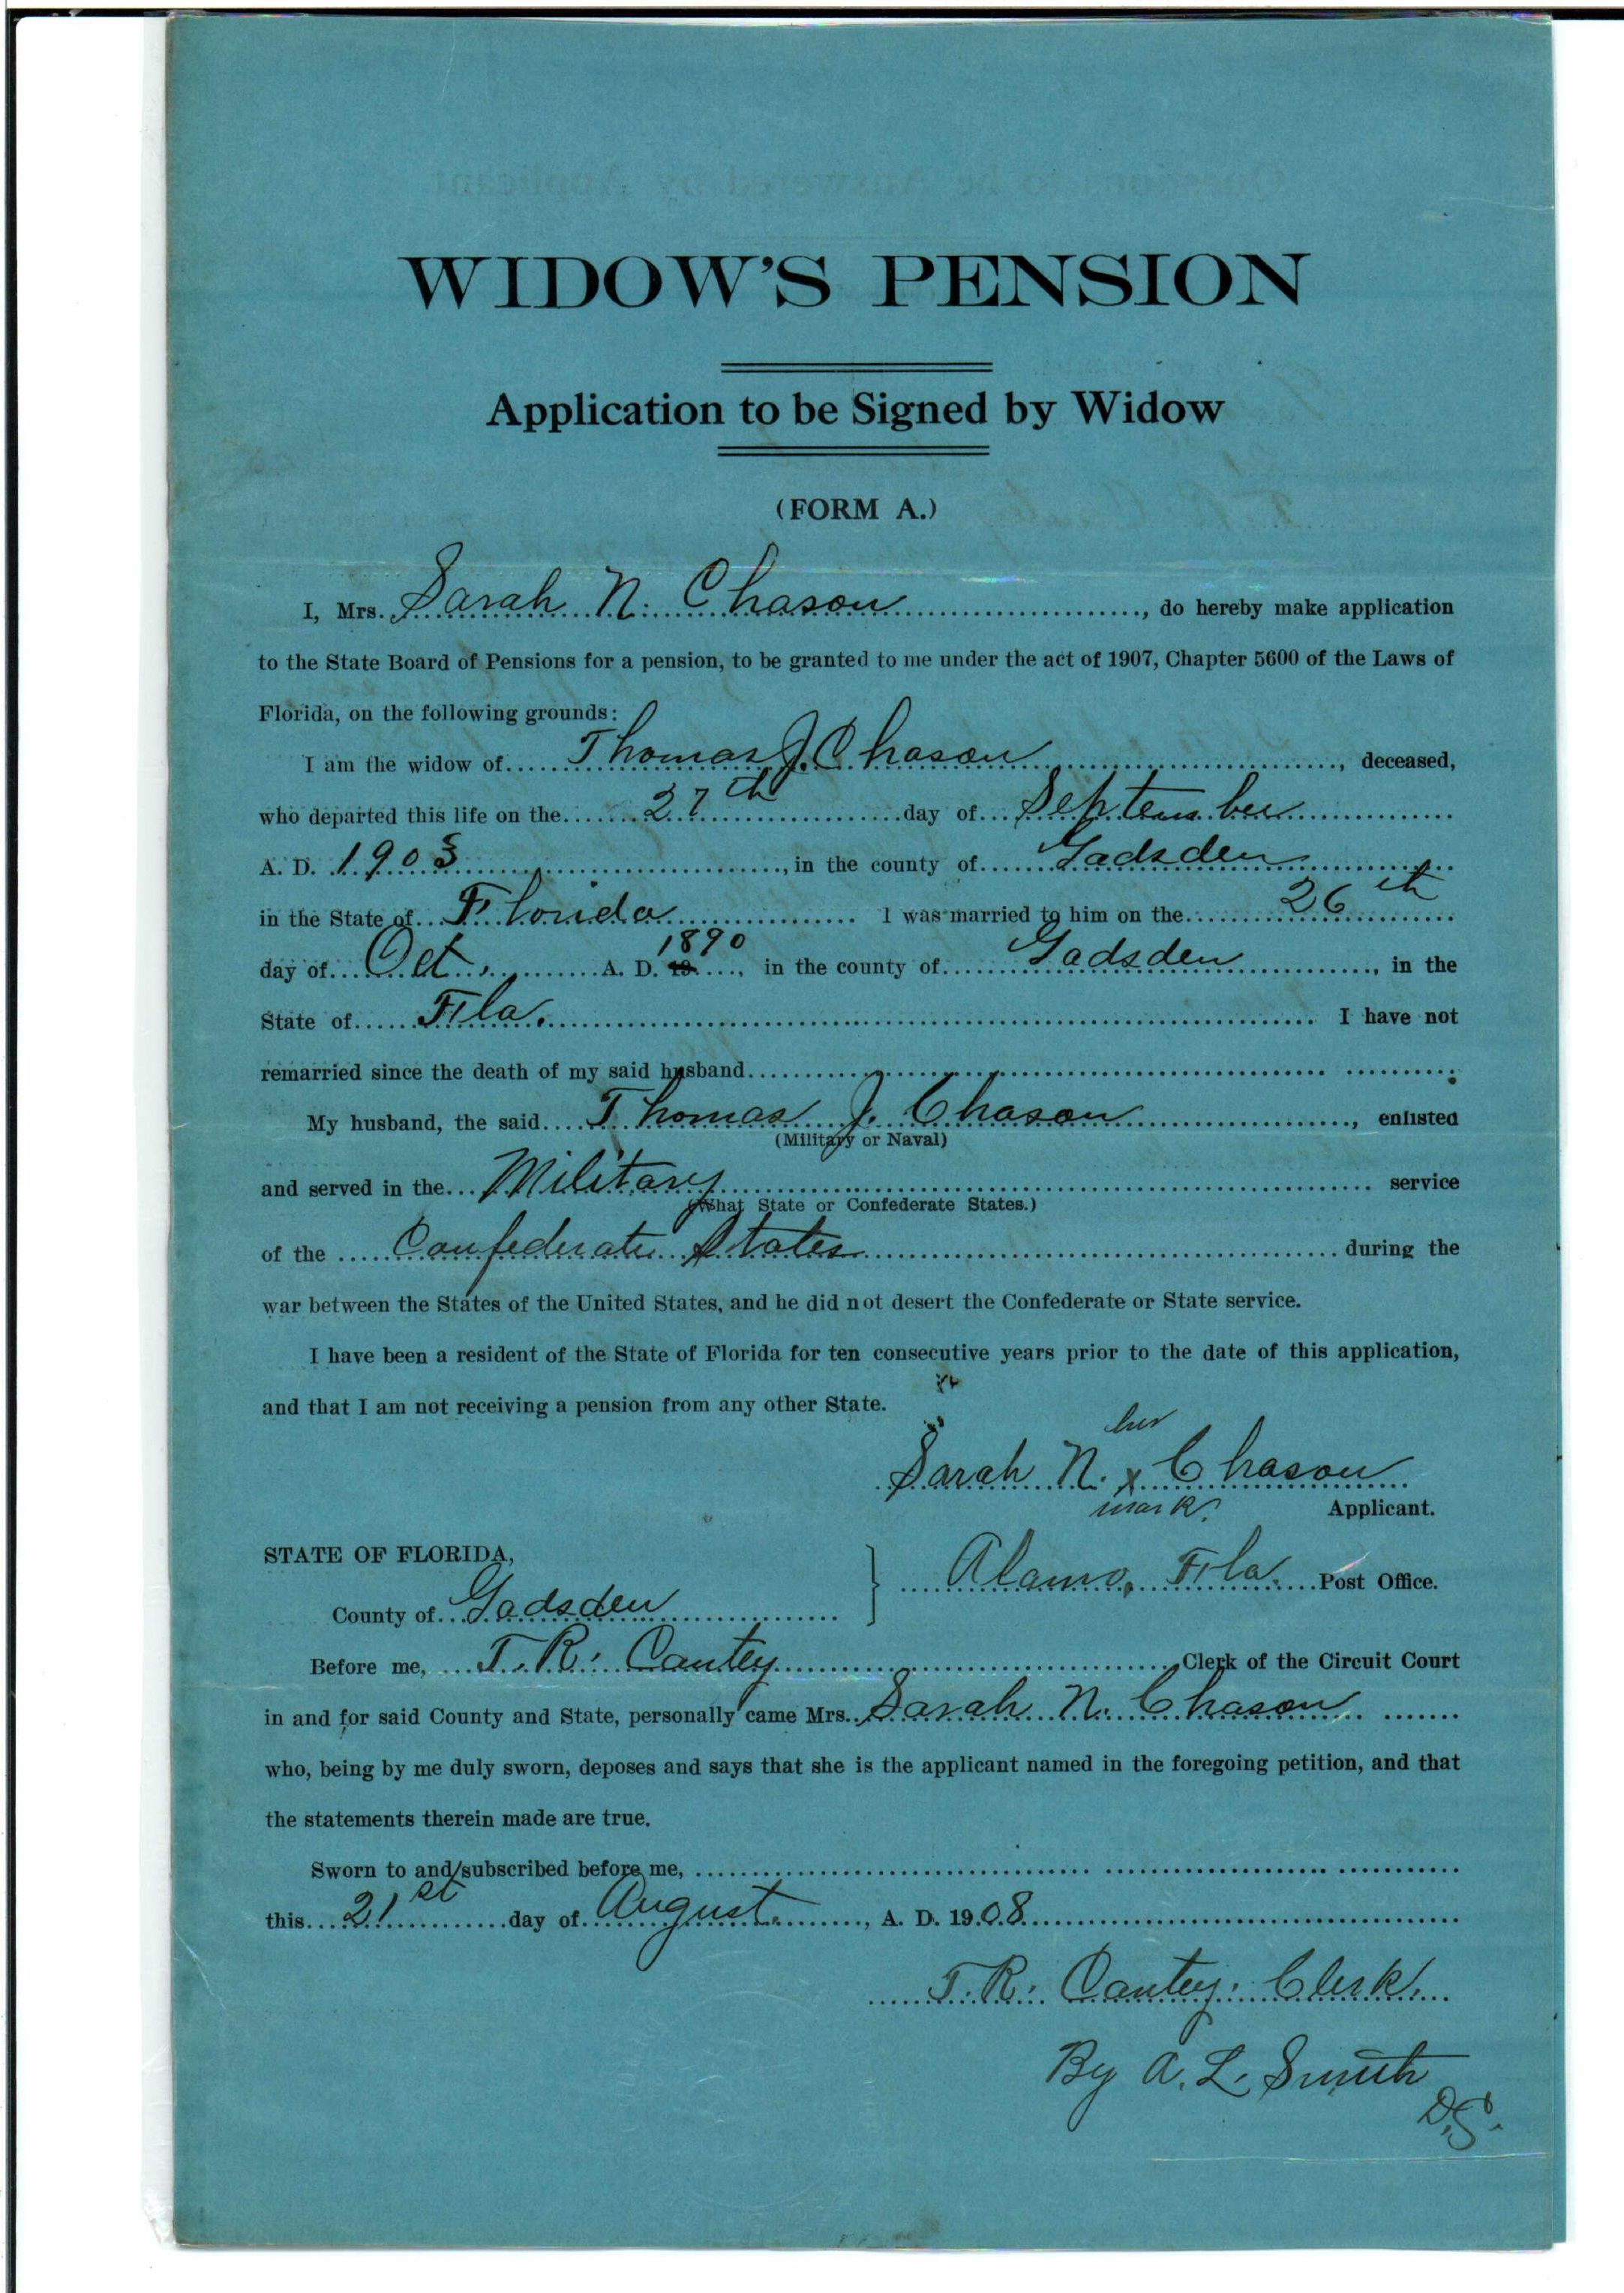 WIDOW'S PENSION
Application to be Signed by Widow
(FORM A.)
I, Mrs. Sarah N. Chason, do hereby make application
to the State Board of Pensions for a pension, to be granted to me under the act of 1907, Chapter 5600 of the Laws of
Florida, on the following grounds:
I am the widow of Thomas J. Chason, deceased,
who departed this life on the 27th day of September
A. D. 1903, in the county of Gadsden
in the State of Florida I was married to him on the 26th
day of Oct. A. D. 19 1890, in the county of Gadsden, in the
State of Fla. I have not
remarried since the death of my said husband.
My husband, the said Thomas J. Chason, enlisted
(Military or Naval)
and served in the Military service
(What State or Confederate States.)
of the Confederate States during the
war between the States of the United States, and he did not desert the Confederate or State service.
I have been a resident of the State of Florida for ten consecutive years prior to the date of this application,
and that I am not receiving a pension from any other State.
her
Sarah N. x Chason
mark. Applicant.
STATE OF FLORIDA,
Alamo, Fla. Post Office.
County of Gadsden
Before me, T. R. Cantey Clerk of the Circuit Court
in and for said County and State, personally came Mrs. Sarah N. Chason
who, being by me duly sworn, deposes and says that she is the applicant named in the foregoing petition, and that
the statements therein made are true.
Sworn to and subscribed before me,
this 21st day of August, A. D. 1908
T. R. Cantey. Clerk.
By A. L. Smith